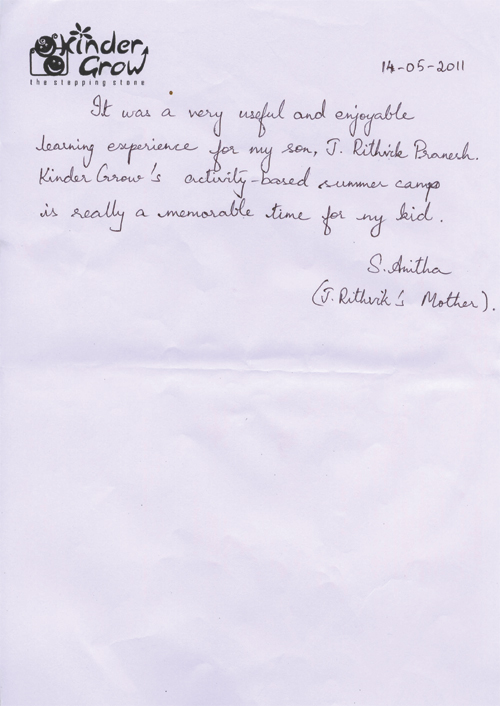 Kinder
Grow
the stepping stone
14-05-2011
It was a very useful and enjoyable
learning experience for my son, J. Rithvik Pranesh.
Kinder Grow's activity-based summer camp
is really a memorable time for my kid.
S. Anitha
(J. Rithvik's Mother).